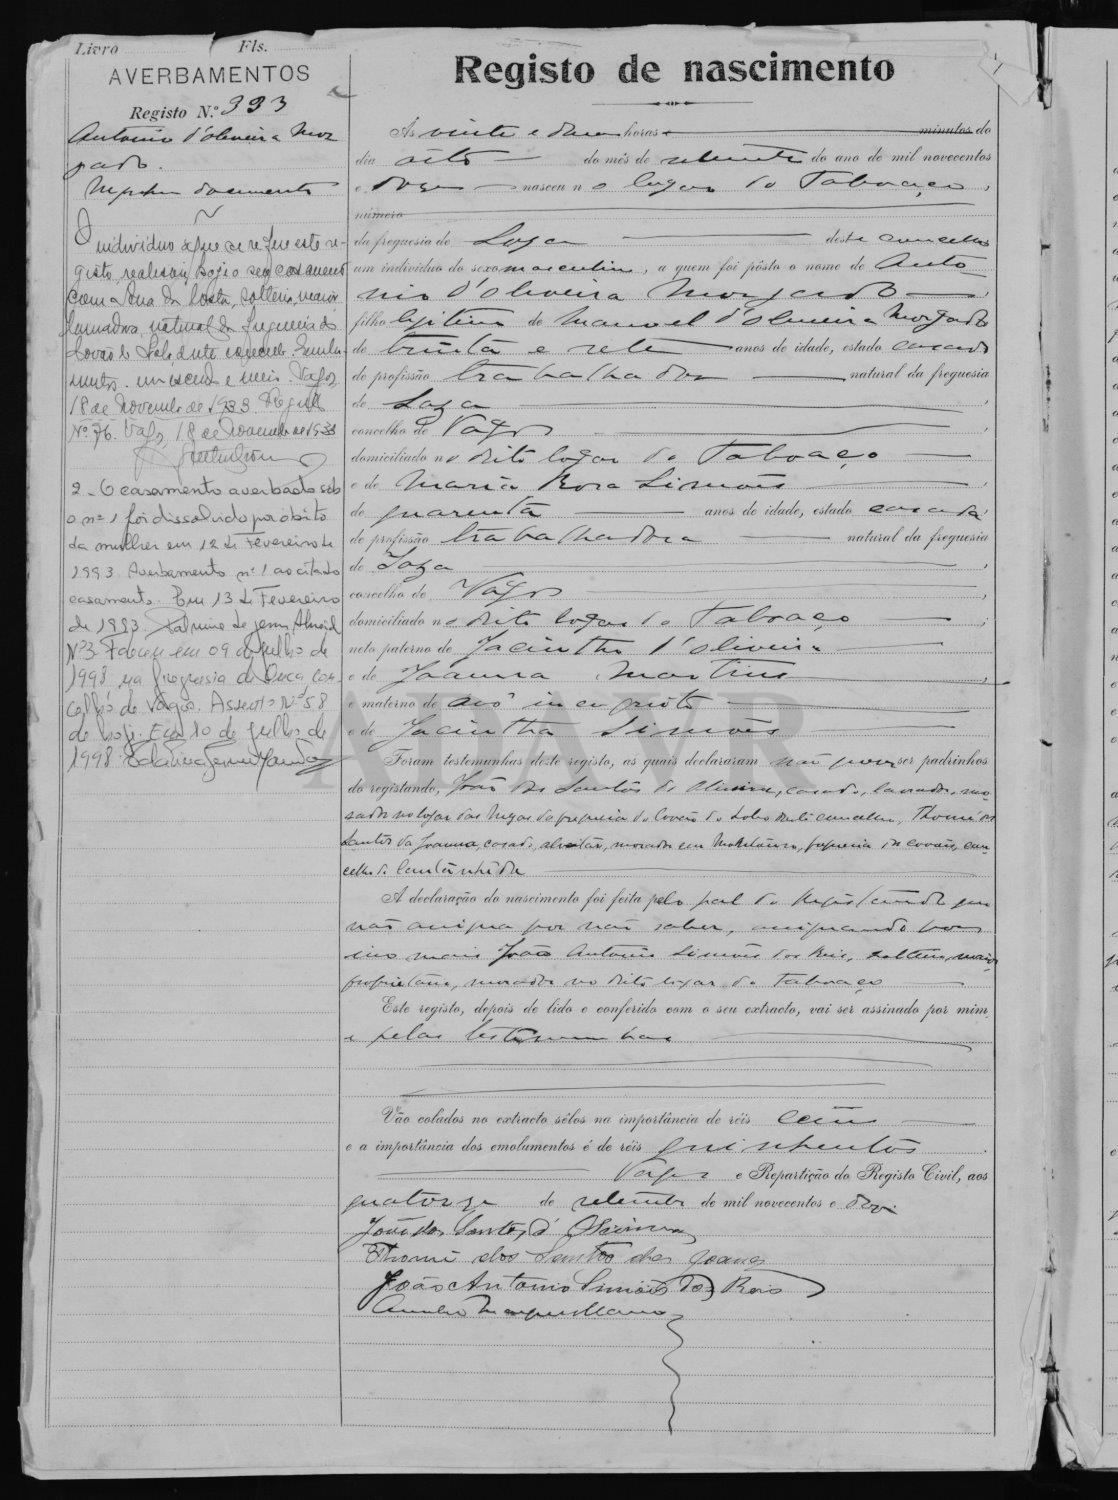 Livro Fls.
AVERBAMENTOS
Registo N.º 393
Antonio d'Oliveira Mor
gado.
documento
O individuo a que se refere este re-
gisto, realisou hoje o seu casamento
com da Costa, solteira, maior
natural da freguesia de
Covão do Lobo deste concelho. Emolu-
mentos. um escudo e meio. Vagos,
18 de Novembro de 1933. Registo
Nº 76. Vagos, 18 de Novembro de 1933
2 - O casamento averbado sob
o nº 1 foi dissolvido por óbito
da mulher em 12 de Fevereiro de
1993. Averbamento nº 1 ao citado
casamento. Em 13 de Fevereiro
de 1993.
Nº 3 Faleceu em 09 de Julho de
1998 na freguesia de Ouca con-
celho de Vagos. Assento Nº 58
de hoje. Em 10 de Julho de
1998.
Registo de nascimento
Ás vinte e duas horas minutos do
dia oito do mês de setembro do ano de mil novecentos
e doze nasceu no lugar do Taboaço,
número
da freguesia de Soza deste concelho
um indivíduo do sexo masculino, a quem foi pôsto o nome de Anto
nio d'Oliveira Morgado
filho legitimo de Manoel d'Oliveira Morgado
de trinta e sete anos de idade, estado casado
de profissão trabalhador natural da freguesia
de Soza
concelho de Vagos
domiciliado no dito logar do Taboaço
e de Maria Rosa Simões
de quarenta anos de idade, estado casada
de profissão trabalhadora natural da freguesia
de Soza
concelho de Vagos
domiciliado no dito logar do Taboaço
neto paterno de Jacintho d'Oliveira
e de Joanna Martins
e materno de avô incognito
e de Jacintha Simões
Foram testemunhas deste registo, as quais declararam não ser padrinhos
do registando, João dos Santos de Oliveira, casado, lavrador, mo-
rador no logar das da freguesia do Covão do Lobo deste concelho, Thomé dos
Santos da Joanna, casado, morador em freguesia de Covões, con-
celho de Cantanhede
A declaração do nascimento foi feita pelo pai do registando que
não assigna por não saber, assignando
mais João Antonio Simões dos Reis, solteiro, maior,
proprietario, morador no dito logar do Taboaço
Este registo, depois de lido e conferido com o seu extracto, vai ser assinado por mim
e pelas testemunhas
Vão colados no extracto sêlos na importância de réis cem
e a importância dos emolumentos é de réis quinhentos
Vagos e Repartição do Registo Civil, aos
quatorze de setembro de mil novecentos e doze
João dos Santos d'Oliveira
Thomé dos Santos da Joana
João Antonio Simões dos Reis
ADAVR